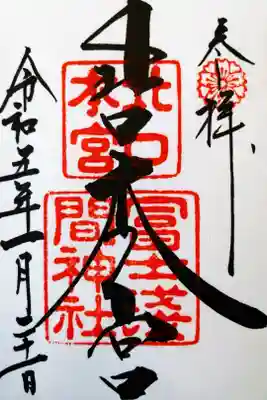 奉拝
北口
本宮
冨士淺
間神社
令和五年一月二十一日